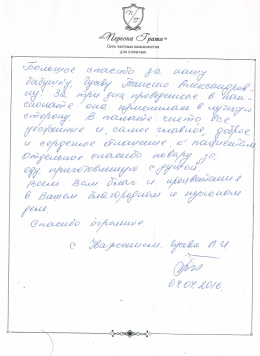 «Персона Грата»
Сеть частных пансионатов
для пожилых
Большое спасибо за нашу
бабушку, Гусеву Таисию Александров-
ну. За три дня проведенное в пан-
сионате она изменилась в лучшую
сторону. В палате чисто, все
ухоженные и самое главное, доброе
и сердечное отношение к пациентам
Отдельное спасибо повару за
еду приготовленную с душой.
Всем Вам благ и процветания
в Вашем благородном и нужном
деле.
Спасибо огромное.
С Уважением Гусева Л.И
04.04.2016.